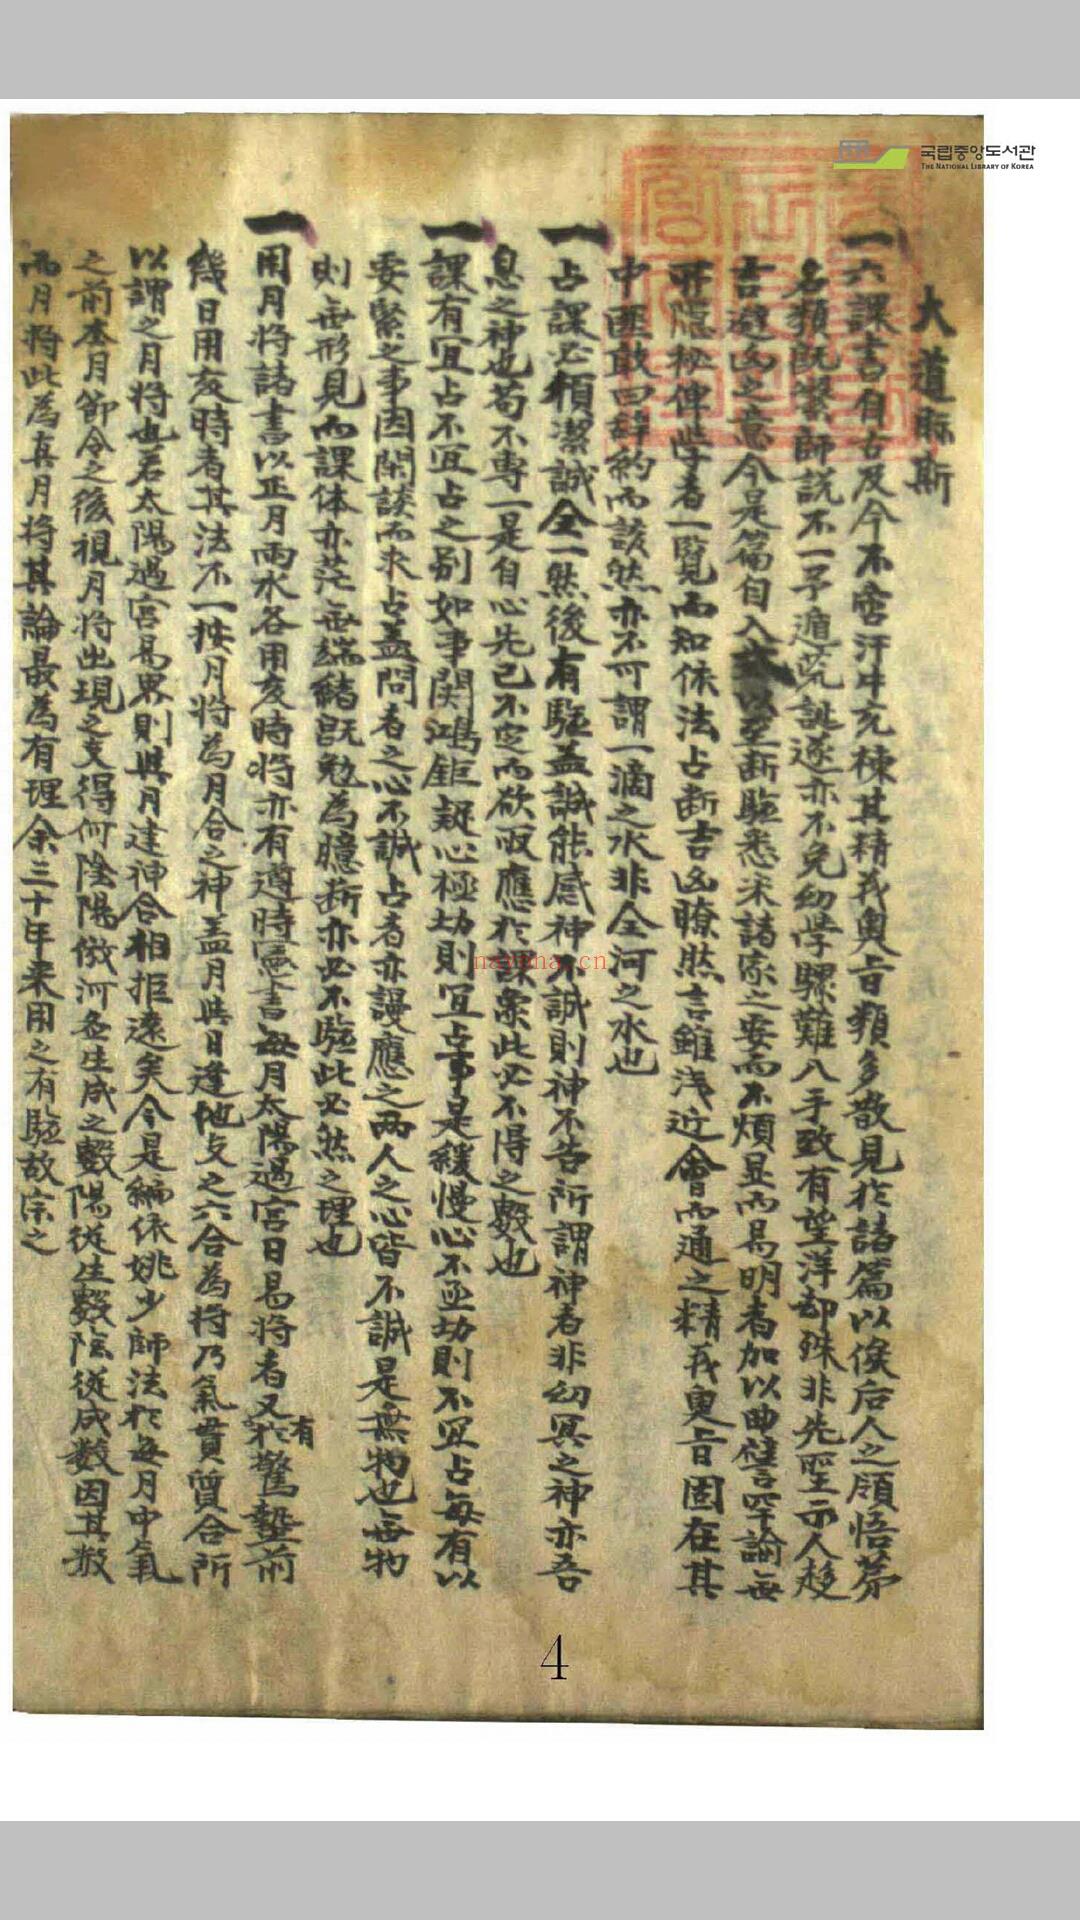 국립중앙도서관
THE NATIONAL LIBRARY OF KOREA
大道斯
一六課書自古及今不啻汗牛充棟其精義奧旨類多散見於諸篇以俟后人之領悟
名類既繁師說不一遂亦不免幼學驟難入手致有望洋却殊非先聖示人趍
吉避凶之意今是篇自入至斷驗悉采諸家之要而不煩显而易明者加以曲譬罕諭無
所隱秘俾学者一覽而知依法占斷吉凶瞭然言雖浅近會而通之精義奧旨固在其
中匪敢曰辞約而該然亦不可謂一滴之水非全河之水也
一占課必頮潔誠全一然後有驗盖誠能感神不誠則神不告所謂神者非幼冥之神亦吾
息之神也苟不專一是自心先已不定而欲取應於課案此必不得之數也
一課有宜占不宜占之別如事関鴻鉅疑心極功則宜占事是緩慢心不亟功則不宜占每有以
要緊之事因閑談而求占盖問者之心不誠占者亦謾應之兩人之心皆不誠是無物也無物
則無形見而課体亦茫無端緒既勉為臆斷亦必不驗此必然之理也
一用月将諸書以正月雨水各用亥時将亦有遵時憲書每月太陽過宮日易将者又有於驚蟄前
幾日用亥時者其法不一按月将為月合之神盖月與日逢他支之六合為将乃氣貫質合所
以謂之月将也若太陽過宮易界則與月建神合相拒遠矣今是編依姚少師法於每月中氣
之前本月節令之後視月将出現之支得何陰陽倣河啚生成之數陽從生數陰從成數因其數
而月将此為真月将其論最為有理余三十年来用之有驗故宗之
nayana.cn
4